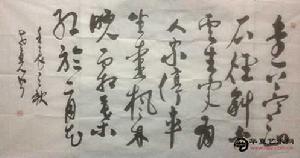 远上寒山
石径斜白
雲生处有
人家停车
坐爱枫林
晚霜葉
红於二月花